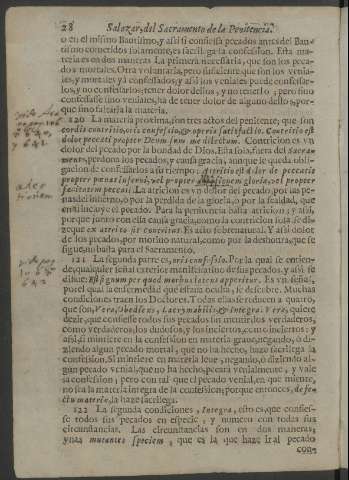 28 Salazar, del Sacramento de la Penitencia.
o en el mismo Bautismo, y assi si confiessa pecados antes del Bau-
tismo cometidos solamente, es sacrilega la confession. Esta ma-
teria es en dos maneras La primera necessaria, que son los peca-
dos mortales. Otra voluntaria, pero suficiente, que son los venia-
les, y mortales yà confessados; y assi los veniales puede confessar-
los, y no confessarlos; tener dolor dellos, y no tenerlo; pero sino
confessasse uno veniales, ha de tener dolor de alguno dellos, por-
que sino faltaria la materia.
120 La materia proxima, son tres actos del penitente, que son
cordis contritio, oris confessio, & operis satisfactio. Contritio est
dolor peccati propter Deum summe dilectum. Contricion es vn
dolor del pecado por la bondad de Dios. Esta sola, fuera del Sacra-
mento, perdona los pecados, y causa gracia, aunque le queda obli-
gacion de confessarlos a su tiempo: Attritio est dolor de peccatis
propter pœnas inferni, vel propter gloriæ, vel propter
fœditatem peccati. La atricion es vn dolor del pecado, por las pe-
nas del infierno, ò por la perdida de la gloria, ò por la fealdad, que
en si incluye el pecado. Para la penitencia basta atricion; y assi,
porque junto con esta causa gracia, como la contricion sola se di-
ze que ex attrito sit contritus. Es acto sobrenatural. Y assi dolor
de los pecados, por motivo natural, como por la deshonra, que se
sigue, no basta para el Sacramento.
121 La segunda parte es, oris confessio. Por la qual se entien-
de, qualquier señal exterior manifestativo de sus pecados, y assi se
dize: Est signum per quod morbus latens aperitur. Es vn señal,
por el qual la enfermedad que estava oculta, se descubre. Muchas
condiciones traen los Doctores. Todas ellas se reducen a quatro,
que son, Vera, Obediens, Lacrymabilis, & Integra. Vera, quiere
dezir, que confiesse todos sus pecados sin mentir los verdaderos,
como verdaderos, los dudosos, y los inciertos, como inciertos: y
assi, si mintiere en la confession en materia grave, negando, ò di-
ziendo algun pecado mortal, que no ha hecho, haze sacrilega la
confession. Si mintiere en materia leue, negando, ò diziendo al-
gun pecado venial, que no ha hecho, pecará venialmente, y vale
sa confession; pero con tal que el pecado venial, en que miente,
no sea la materia integra de la confession; porque entonces, defe-
ctu materiæ, la haze sacrilega.
122 La segunda condiciones, Integra, esto es, que confies-
se todos sus pecados en especie, y numero con todas sus
circunstancias. Las circunstancias son en dos maneras,
vnas mutantes speciem, que es la que haze ir al pecado
con-